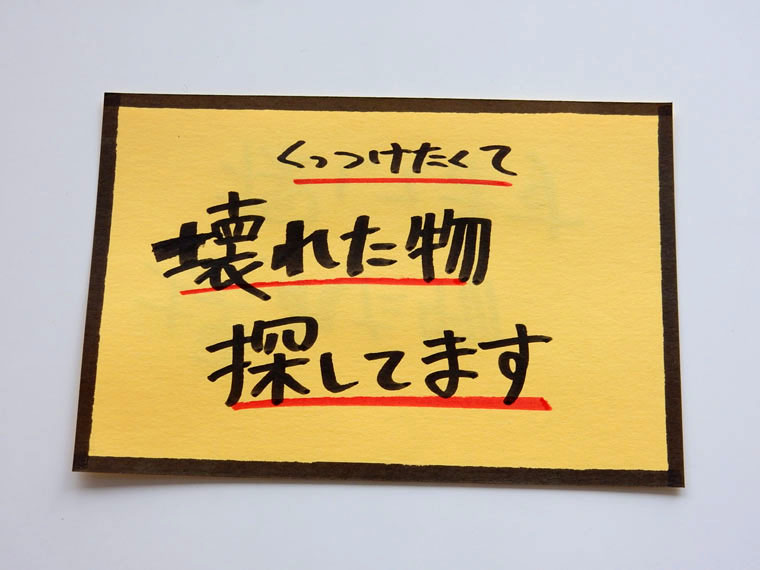 くっつけたくて
壊れた物
探してます